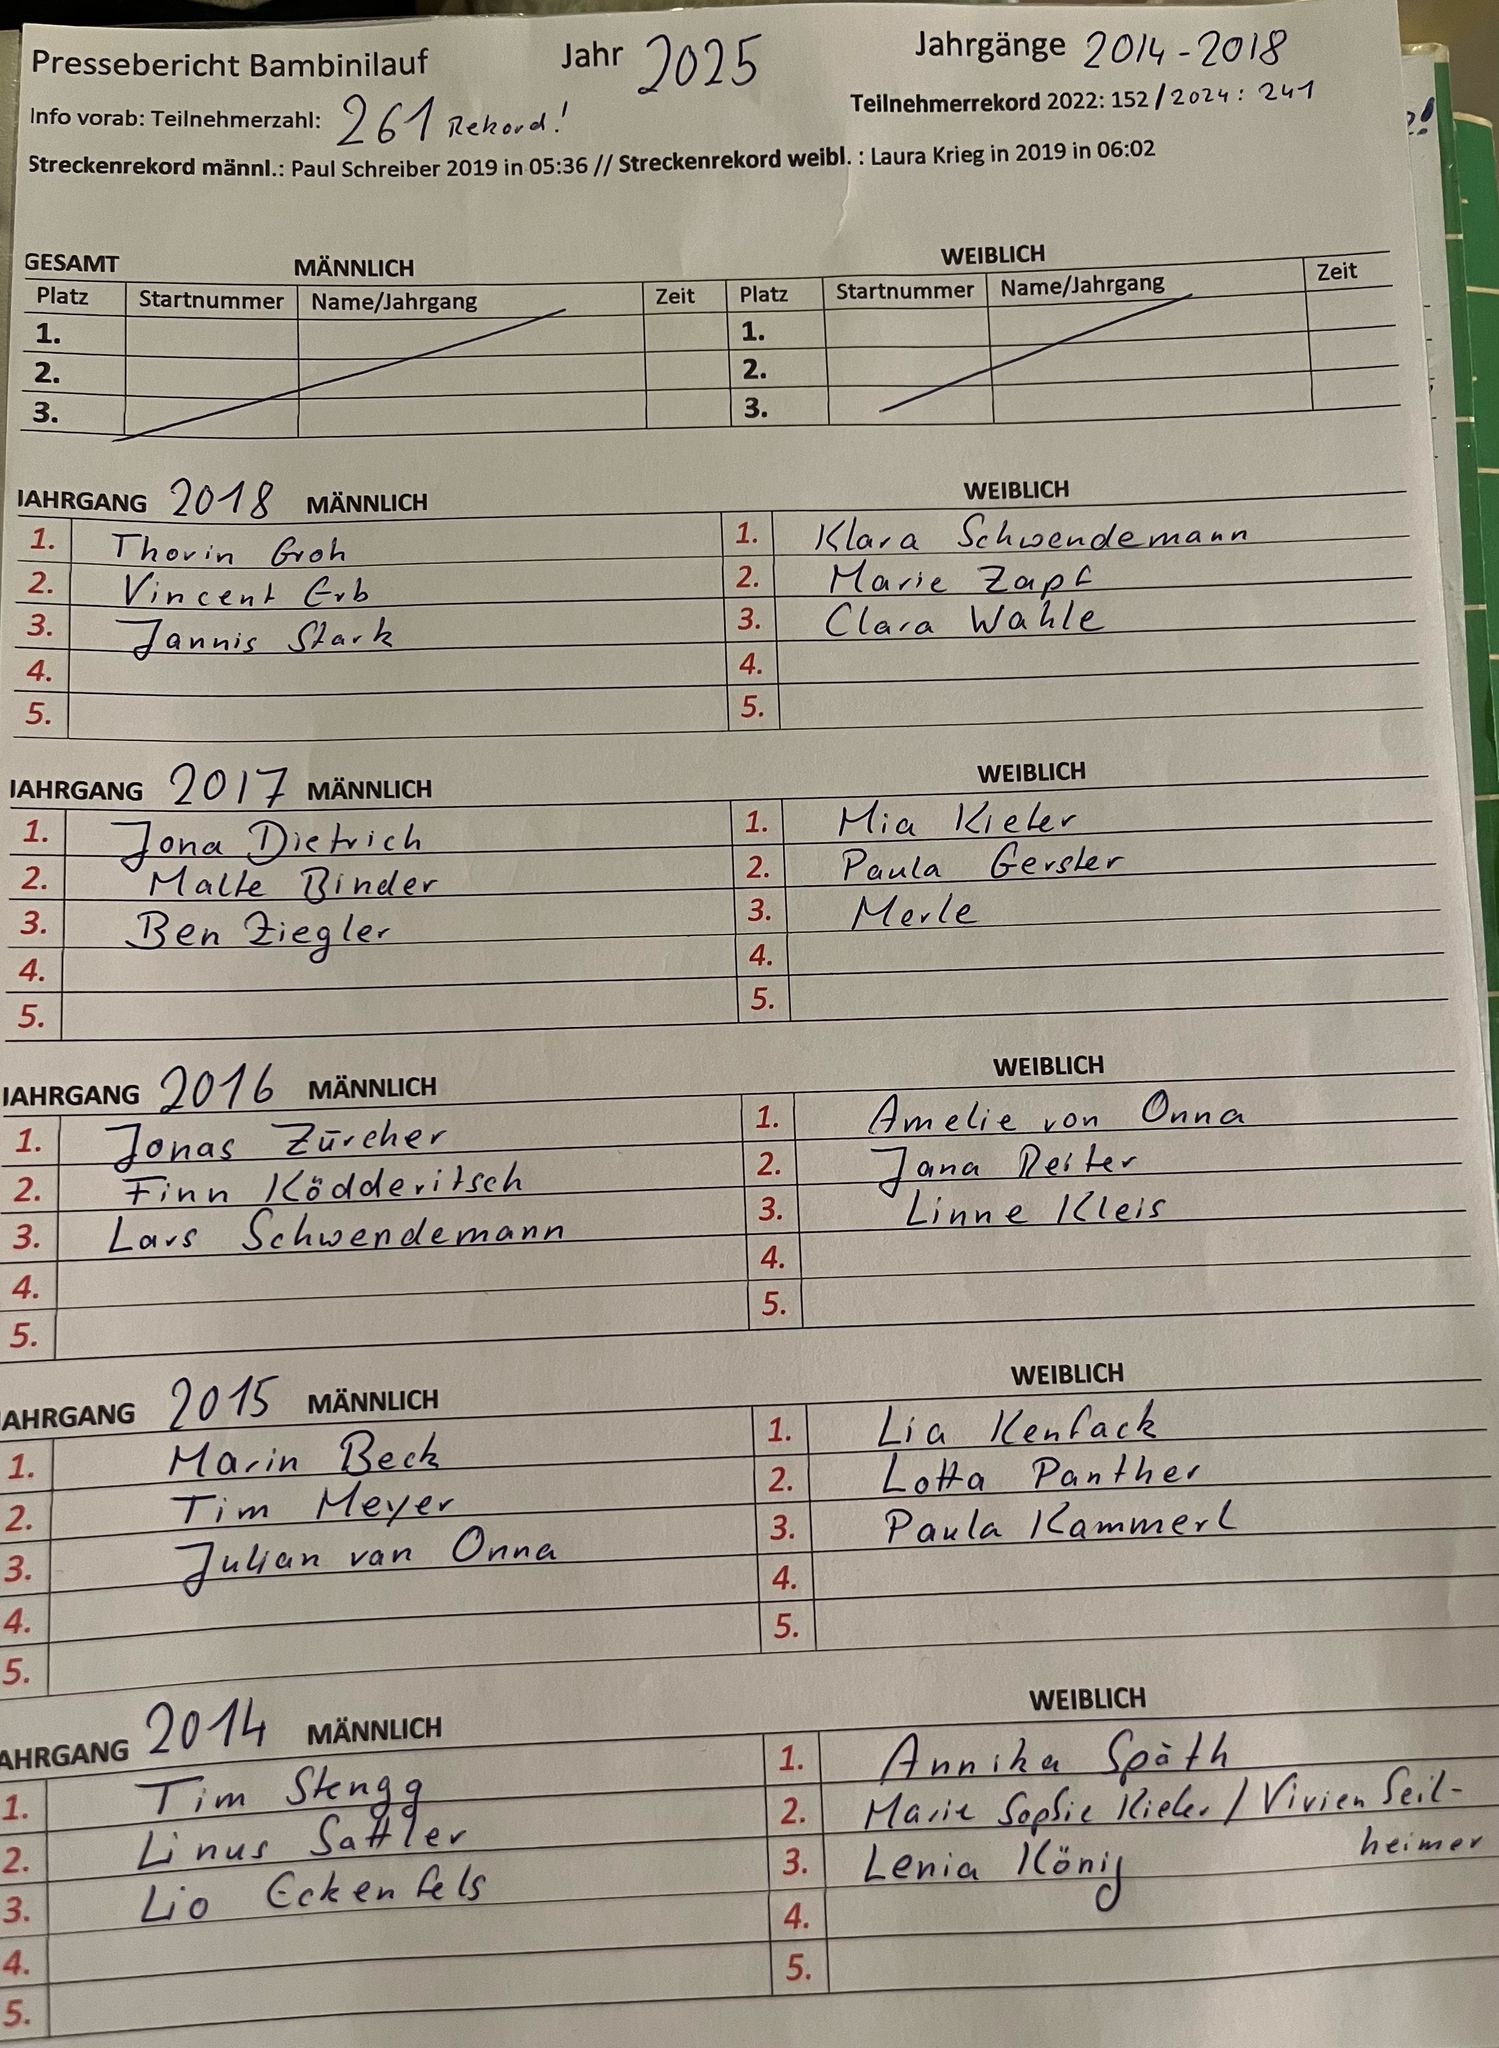 Pressebericht Bambinilauf Jahr 2025 Jahrgänge 2014-2018
Info vorab: Teilnehmerzahl: 261 Rekord! Teilnehmerrekord 2022: 152 / 2024: 241
Streckenrekord männl.: Paul Schreiber 2019 in 05:36 // Streckenrekord weibl. : Laura Krieg in 2019 in 06:02
GESAMT MÄNNLICH WEIBLICH
Platz Startnummer Name/Jahrgang Zeit Platz Startnummer Name/Jahrgang Zeit
1. 1.
2. 2.
3. 3.
IAHRGANG 2018 MÄNNLICH WEIBLICH
1. Thorin Groh 1. Klara Schwendemann
2. Vincent Erb 2. Marie Zapf
3. Jannis Stark 3. Clara Wahle
4. 4.
5. 5.
IAHRGANG 2017 MÄNNLICH WEIBLICH
1. Jona Dietrich 1. Mia Kiefer
2. Malte Binder 2. Paula Gerster
3. Ben Ziegler 3. Merle
4. 4.
5. 5.
IAHRGANG 2016 MÄNNLICH WEIBLICH
1. Jonas Zürcher 1. Amelie von Onna
2. Finn Ködderitsch 2. Jana Reiter
3. Lars Schwendemann 3. Linne Kleis
4. 4.
5. 5.
AHRGANG 2015 MÄNNLICH WEIBLICH
1. Marin Beck 1. Lia Kenfack
2. Tim Meyer 2. Lotta Panther
3. Julian van Onna 3. Paula Kammerl
4. 4.
5. 5.
AHRGANG 2014 MÄNNLICH WEIBLICH
1. Tim Stengg 1. Annika Späth
2. Linus Sattler 2. Marie Sophie Kiefer / Vivien Seil-
heimer
3. Lio Eckenfels 3. Lenia König
4. 4.
5. 5.